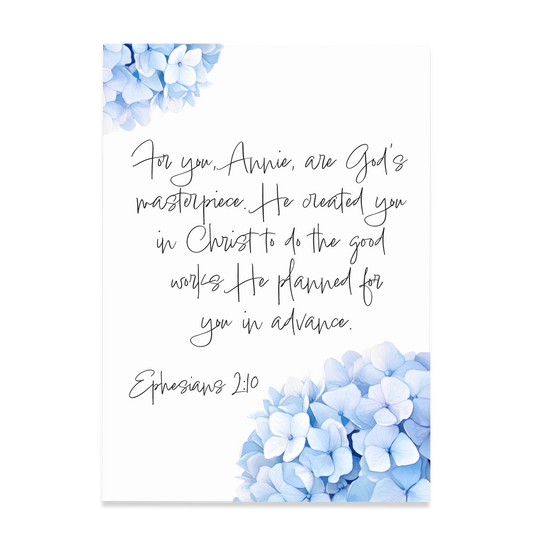 For you, Annie, are God's
masterpiece. He created you
in Christ to do the good
works He planned for
you in advance.
Ephesians 2:10